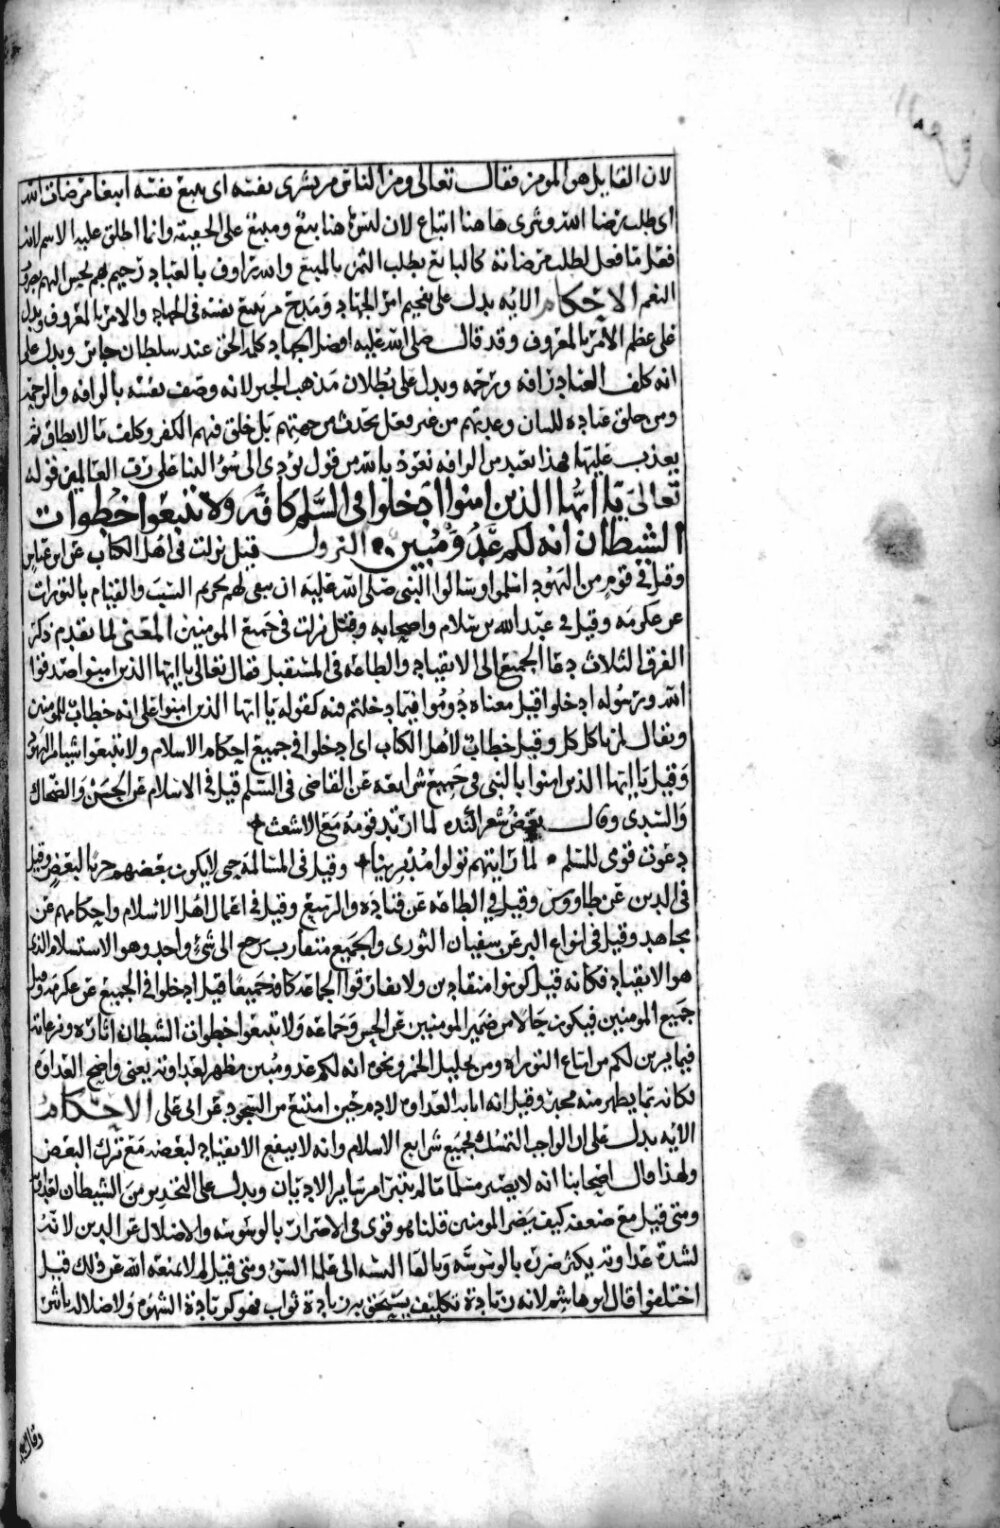 لان القايل هو المومن فقال تعالى ومن الناس من يشرى نفسه اى يبيع نفسه ابتغا مرضات الله
اى طلب رضا الله وشرى هاهنا اتباع لان ليس هنا بيع ومبيع على الحقيقة وانما اطلق عليه الاسم لانه
فعل ما فعل لطلب مرضاته كالبايع يطلب الثمن بالمبيع والله رؤوف بالعباد رحيم بهم
النعم الاحكام الايه يدل على تفخيم امر الجهاد ومدح من يبيع نفسه فى الجهاد والامر بالمعروف ويدل
على عظم الامر بالمعروف وقد قال صلى الله عليه افضل الجهاد كلمة الحق عند سلطان جاير ويدل على
انه كلف العباد رافه ورحمه ويدل على بطلان مذهب الجبر لانه وصف نفسه بالرافه والرحمه
ومن خلق عباده للنيران وعذبهم من غير فعل يحدث من جهتهم بل خلق فيهم الكفر وكلف ما لا يطاق ثم
يعذب عليها فهذا بعيد من الرافه نعوذ بالله من قول يؤدى الى سؤ الثنا على رب العالمين قوله
تعالى يا ايها الذين امنوا ادخلوا فى السلم كافة ولا تتبعوا خطوات
الشيطان انه لكم عدو مبين النزول قيل نزلت فى اهل الكتاب عن ابن عباس
وقيل فى قوم من اليهود اسلموا وسالوا النبى صلى الله عليه ان يبقى لهم تحريم السبت والقيام بالتورات
عن عكرمه وقيل فى عبد الله بن سلام واصحابه وقيل نزلت فى جميع المومنين المعنى لما تقدم ذكر
الفرق الثلاث دعا الجميع الى الانقياد والطاعه فى المستقبل فقال تعالى يا ايها الذين امنوا صدقوا
الله ورسوله ادخلوا قيل معناه دوموا فيما دخلتم فيه كقوله يا ايها الذين امنوا على انه خطاب للمومنين
ويقال لمن ياكل كل وقيل خطاب لاهل الكتاب اى ادخلوا فى جميع احكام الاسلام ولا تتبعوا شيا من اليهوديه
وقيل يا ايها الذين امنوا بالنبى فى جميع شرايعه عن القاضى فى السلم قيل فى الاسلام عن الحسن والضحاك
والسدى وقال بعض شعر اكنده لما ارتد قومه مع الاشعث
دعوت قومى للسلم لما رايتهم تولوا مدبرينا وقيل فى المسالمة حتى لا يكون بعضهم حربا لبعض وقيل
فى الدين عن طاووس وقيل فى الطاعه عن قتاده والربيع وقيل فى اعمال اهل الاسلام واحكامهم عن
مجاهد وقيل فى انواع البر عن سفيان الثورى والجميع متقارب يرجع الى شئ واحد وهو الاستسلام الذى
هو الانقياد فكانه قيل كونوا منقادين ولا تفارقوا الجماعه كافه جميعا قيل ادخلوا فى الجميع عن عكرمه وقيل
جميع المومنين فيكون حالا من ضمير المومنين عن الحسن وجماعه ولا تتبعوا خطوات الشيطان اثاره ونزغاته
فيما يزين لكم من اتباع التوراه ومن تحليل الخمر ونحوه انه لكم عدو مبين مظهر لعداوته يعنى واضح العداوه
فكانه بما يظهر منه مخبر وقيل انه ابان العداوه لادم حين امتنع من السجود عن ابى على الاحكام
الايه يدل على ان الواجب التمسك بجميع شرايع الاسلام وانه لا ينفع الانقياد لبعضه مع ترك البعض
ولهذا قال اصحابنا انه لا يصير مسلما ما لم يتبرا من ساير الاديان ويدل على التحذير من الشيطان لعداوته
ومتى قيل مع ضعفه كيف يضر المومنين قلنا هو قوى فى الاضرار بالوسوسه والاضلال عن الدين لانه
لشدة عداوته يكثر ضرره بالوسوسه وبالقا الشبه الى علما السوء ومتى قيل لم لا يمنعه الله عن ذلك قيل
اختلفوا قال ابو هاشم لانه زيادة تكليف يستحق به زيادة ثواب فهو كزيادة الشهوه ولاضلاله تاثير
وقال